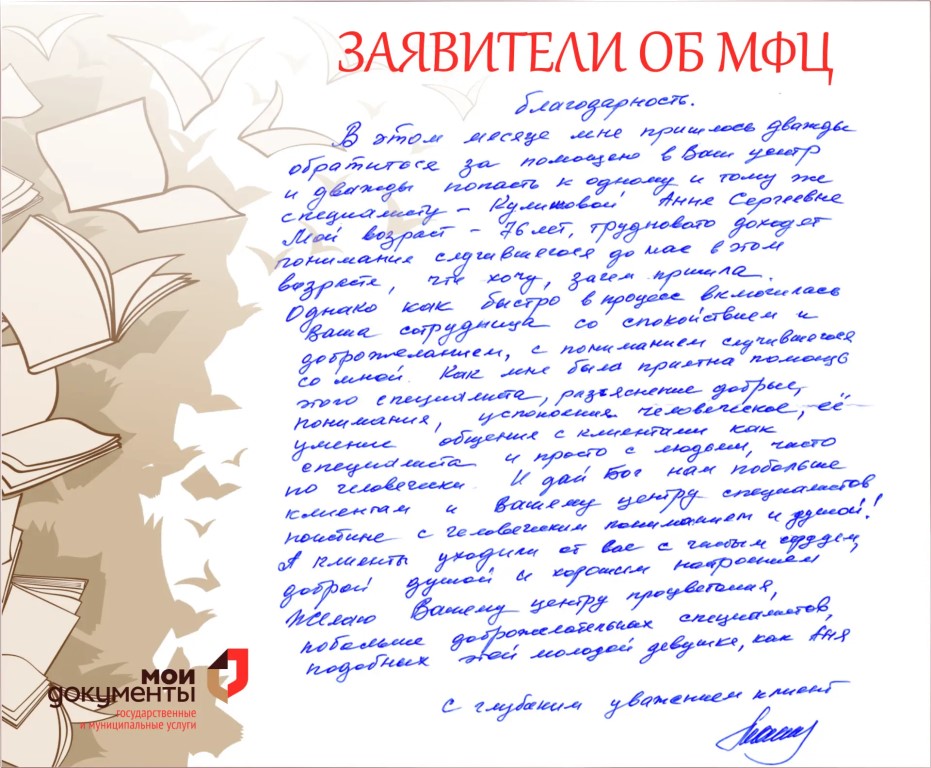 ЗАЯВИТЕЛИ ОБ МФЦ
благодарность.
В этом месяце мне пришлось дважды
обратиться за помощью в Ваш центр
и дважды попасть к одному и тому же
специалисту – Анне Сергеевне
Мой возраст – 76 лет, трудновато доходят
понимание случившегося до нас в этом
возрасте, что хочу, зачем пришла.
Однако как быстро в процесс включилась
Ваша сотрудница со спокойствием и
доброжеланием, с пониманием случившегося
со мной. Как мне была приятна помощь
этого специалиста, разъяснение добрые,
понимания, успокоения человеческое, её
умение общения с клиентами как
специалиста и просто с людьми, чисто
по человечески. И дай Бог нам побольше
клиентам и Вашему центру специалистов
поистине с человеческим пониманием и душой!
А клиенты уходили от вас с чистым сердцем,
доброй душой и хорошим настроением
Желаю Вашему центру процветания,
побольше доброжелательных специалистов,
подобных этой молодой девушке, как Аня
С глубоким уважением клиент
мои
документы
государственные
и муниципальные услуги